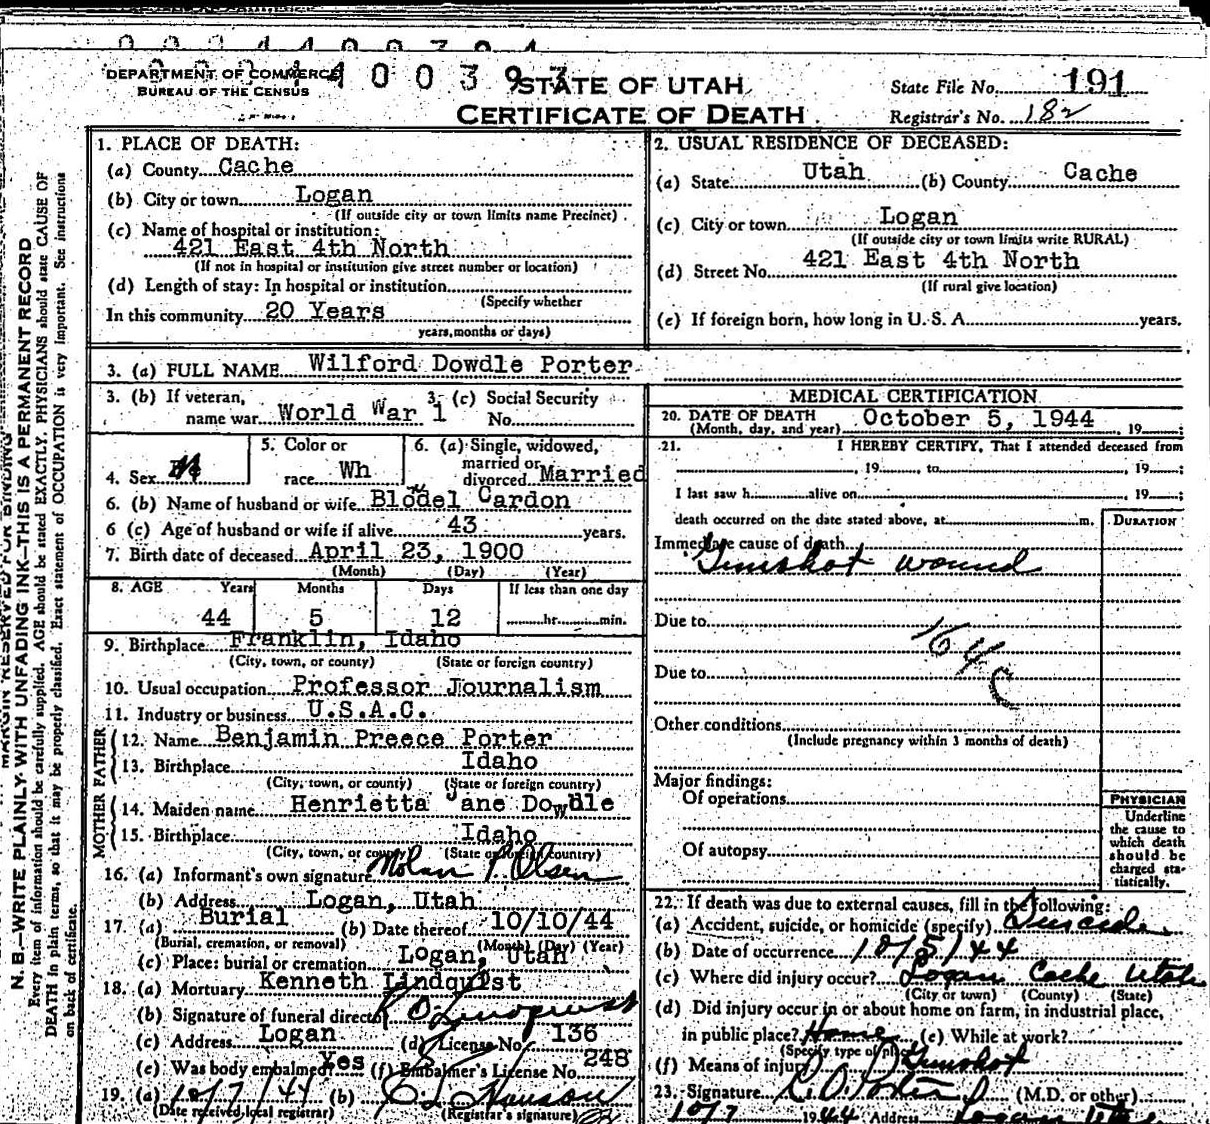 DEPARTMENT OF COMMERCE
BUREAU OF THE CENSUS
STATE OF UTAH
CERTIFICATE OF DEATH
State File No. 191
Registrar's No. 182
1. PLACE OF DEATH:
(a) County Cache
(b) City or town Logan
(If outside city or town limits name Precinct)
(c) Name of hospital or institution:
421 East 4th North
(If not in hospital or institution give street number or location)
(d) Length of stay: In hospital or institution
(Specify whether
In this community 20 Years
years, months or days)
2. USUAL RESIDENCE OF DECEASED:
(a) State Utah (b) County Cache
(c) City or town Logan
(If outside city or town limits write RURAL)
(d) Street No. 421 East 4th North
(If rural give location)
(e) If foreign born, how long in U. S. A. years.
3. (a) FULL NAME Wilford Dowdle Porter
3. (b) If veteran, name war World War 1
3. (c) Social Security No.
4. Sex M
5. Color or race Wh
6. (a) Single, widowed, married or divorced Married
6. (b) Name of husband or wife Blodel Cardon
6 (c) Age of husband or wife if alive 43 years.
7. Birth date of deceased April 23, 1900
(Month) (Day) (Year)
8. AGE Years Months Days If less than one day
44 5 12 hr. min.
9. Birthplace Franklin, Idaho
(City, town, or county) (State or foreign country)
10. Usual occupation Professor Journalism
11. Industry or business U.S.A.C.
FATHER
12. Name Benjamin Preece Porter
13. Birthplace Idaho
(City, town, or county) (State or foreign country)
MOTHER
14. Maiden name Henrietta Jane Dowdle
15. Birthplace Idaho
(City, town, or county) (State or foreign country)
16. (a) Informant's own signature Olsen
(b) Address Logan, Utah
17. (a) Burial (b) Date thereof 10/10/44
(Burial, cremation, or removal) (Month) (Day) (Year)
(c) Place: burial or cremation Logan, Utah
18. (a) Mortuary Kenneth Lindquist
(b) Signature of funeral director
(c) Address Logan (d) License No. 136
(e) Was body embalmed? Yes (f) Embalmer's License No. 248
19. (a) 10/7/44 (b)
(Date received local registrar) (Registrar's signature)
MEDICAL CERTIFICATION
20. DATE OF DEATH October 5, 1944
(Month, day, and year) , 19 ;
21. I HEREBY CERTIFY, That I attended deceased from
, 19 , to , 19 ;
I last saw h alive on , 19 ;
death occurred on the date stated above, at m.
DURATION
Immediate cause of death
Gunshot wound
Due to
164C
Due to
Other conditions
(Include pregnancy within 3 months of death)
Major findings:
Of operations
Of autopsy
PHYSICIAN
Underline
the cause to
which death
should be
charged sta-
tistically.
22. If death was due to external causes, fill in the following:
(a) Accident, suicide, or homicide (specify) Suicide
(b) Date of occurrence 10/5/44
(c) Where did injury occur? Logan Cache Utah
(City or town) (County) (State)
(d) Did injury occur in or about home on farm, in industrial place,
in public place? Home (e) While at work?
(Specify type of place)
(f) Means of injury Gunshot
23. Signature (M.D. or other)
10/7 1944 Address Logan Utah
MARGIN RESERVED FOR BINDING
N. B.—WRITE PLAINLY WITH UNFADING INK—THIS IS A PERMANENT RECORD
Every item of information should be carefully supplied. AGE should be stated EXACTLY. PHYSICIANS should state CAUSE OF
DEATH in plain terms, so that it may be properly classified. Exact statement of OCCUPATION is very important. See instructions
on back of certificate.